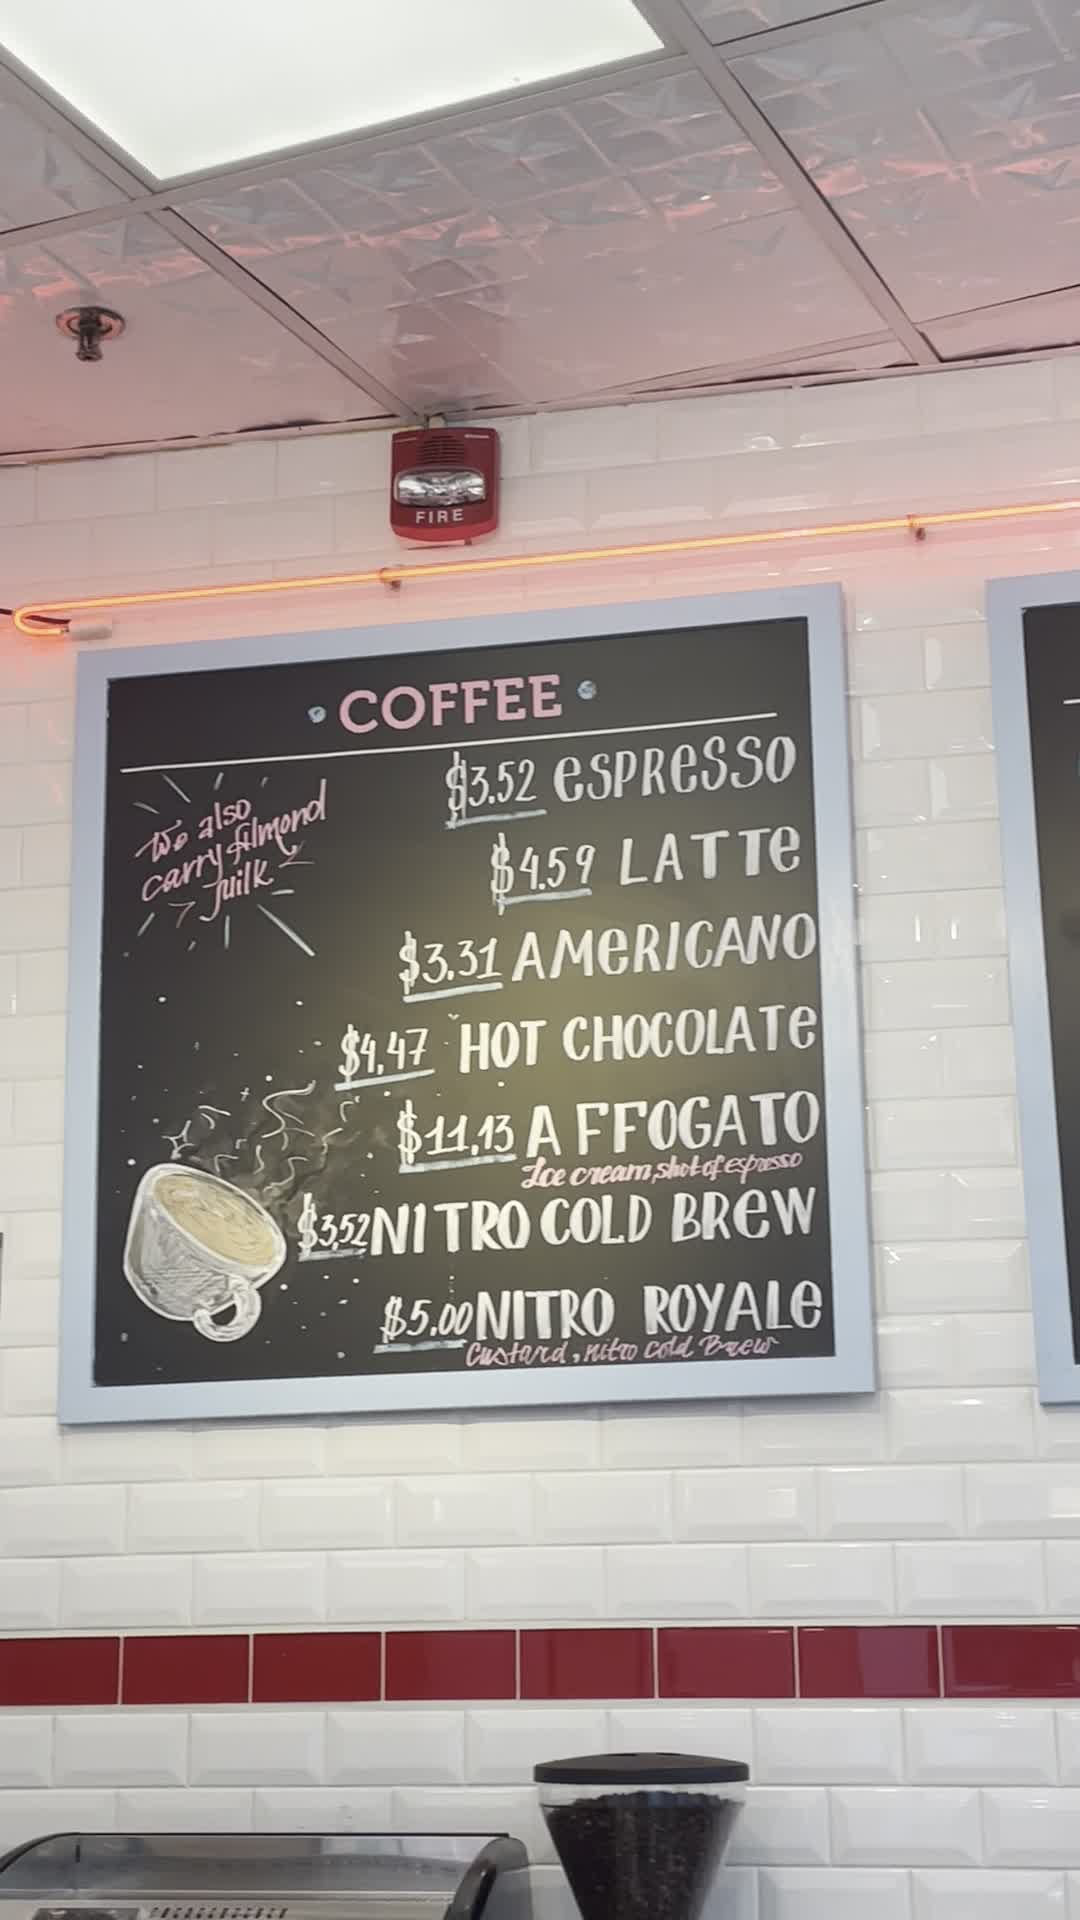 FIRE
COFFEE
We also
carry Almond
Milk
$3.52 ESPRESSO
$4.59 LATTE
$3.31 AMERICANO
$4.47 HOT CHOCOLATE
$11.13 AFFOGATO
Ice cream, shot of espresso
$3.52 NITRO COLD BREW
$5.00 NITRO ROYALE
Custard, nitro Cold Brew